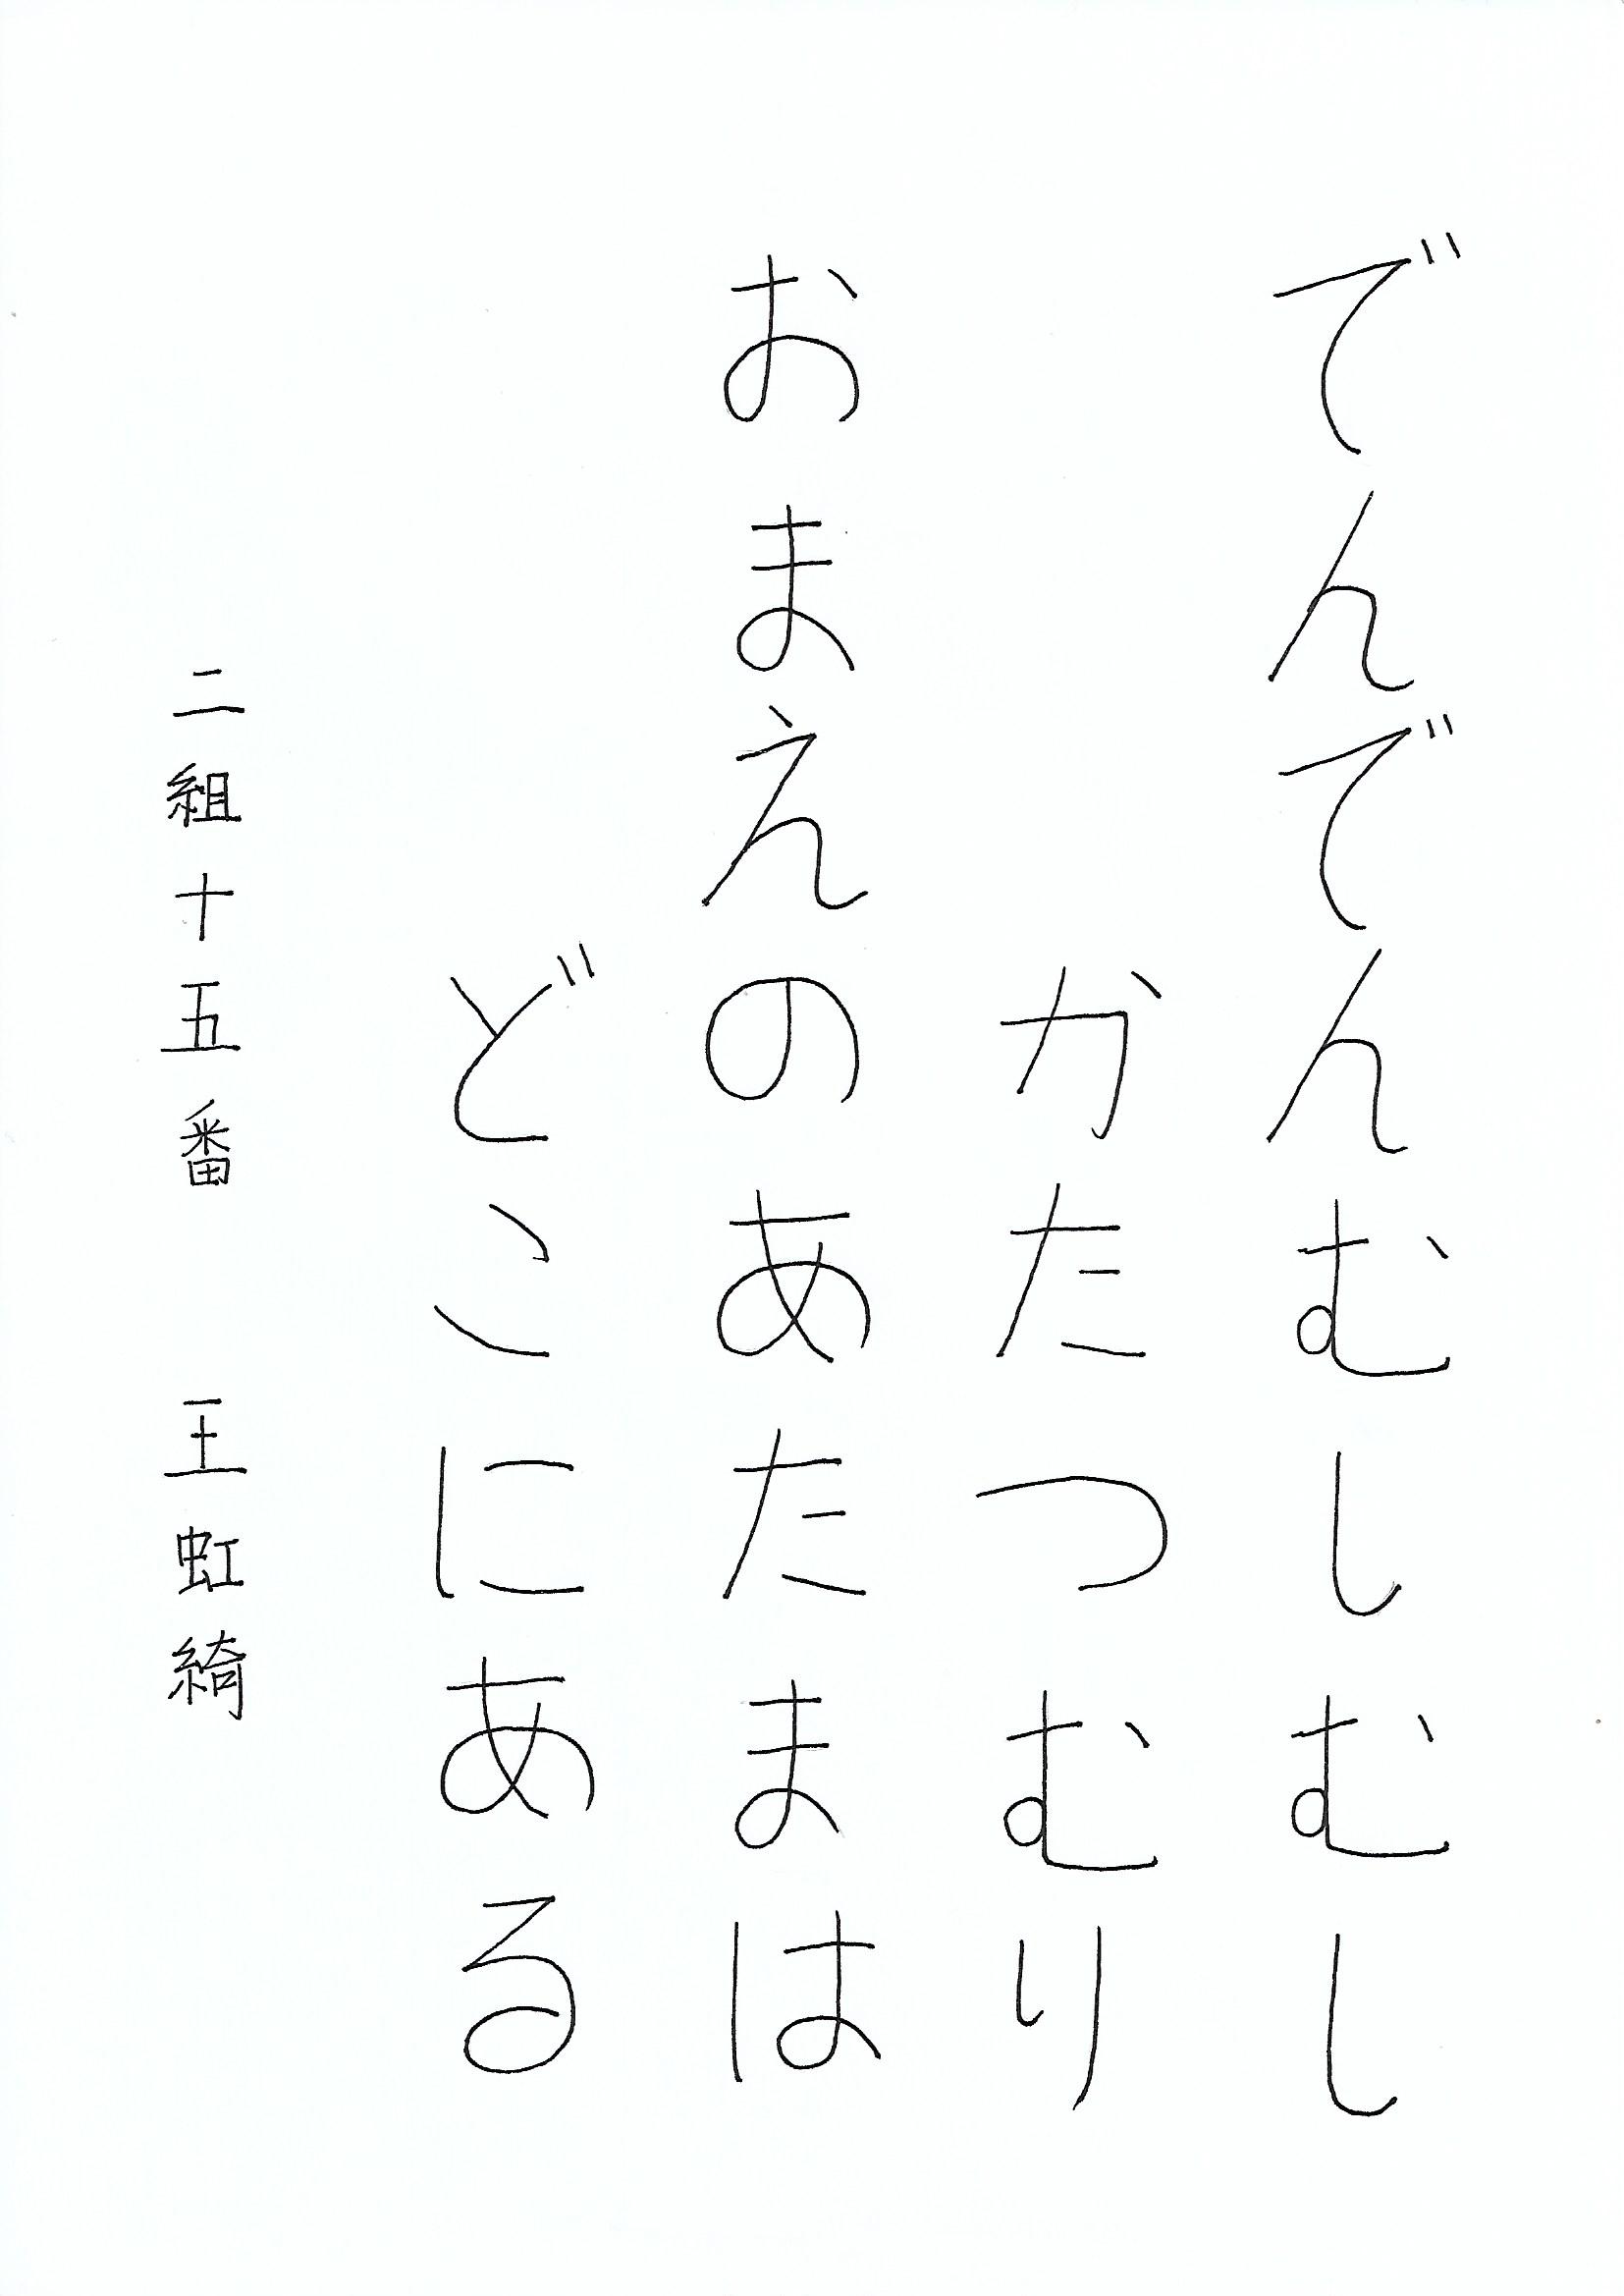 でんでんむしむし
かたつむり
おまえのあたまは
どこにある
二組十五番 王虹綺